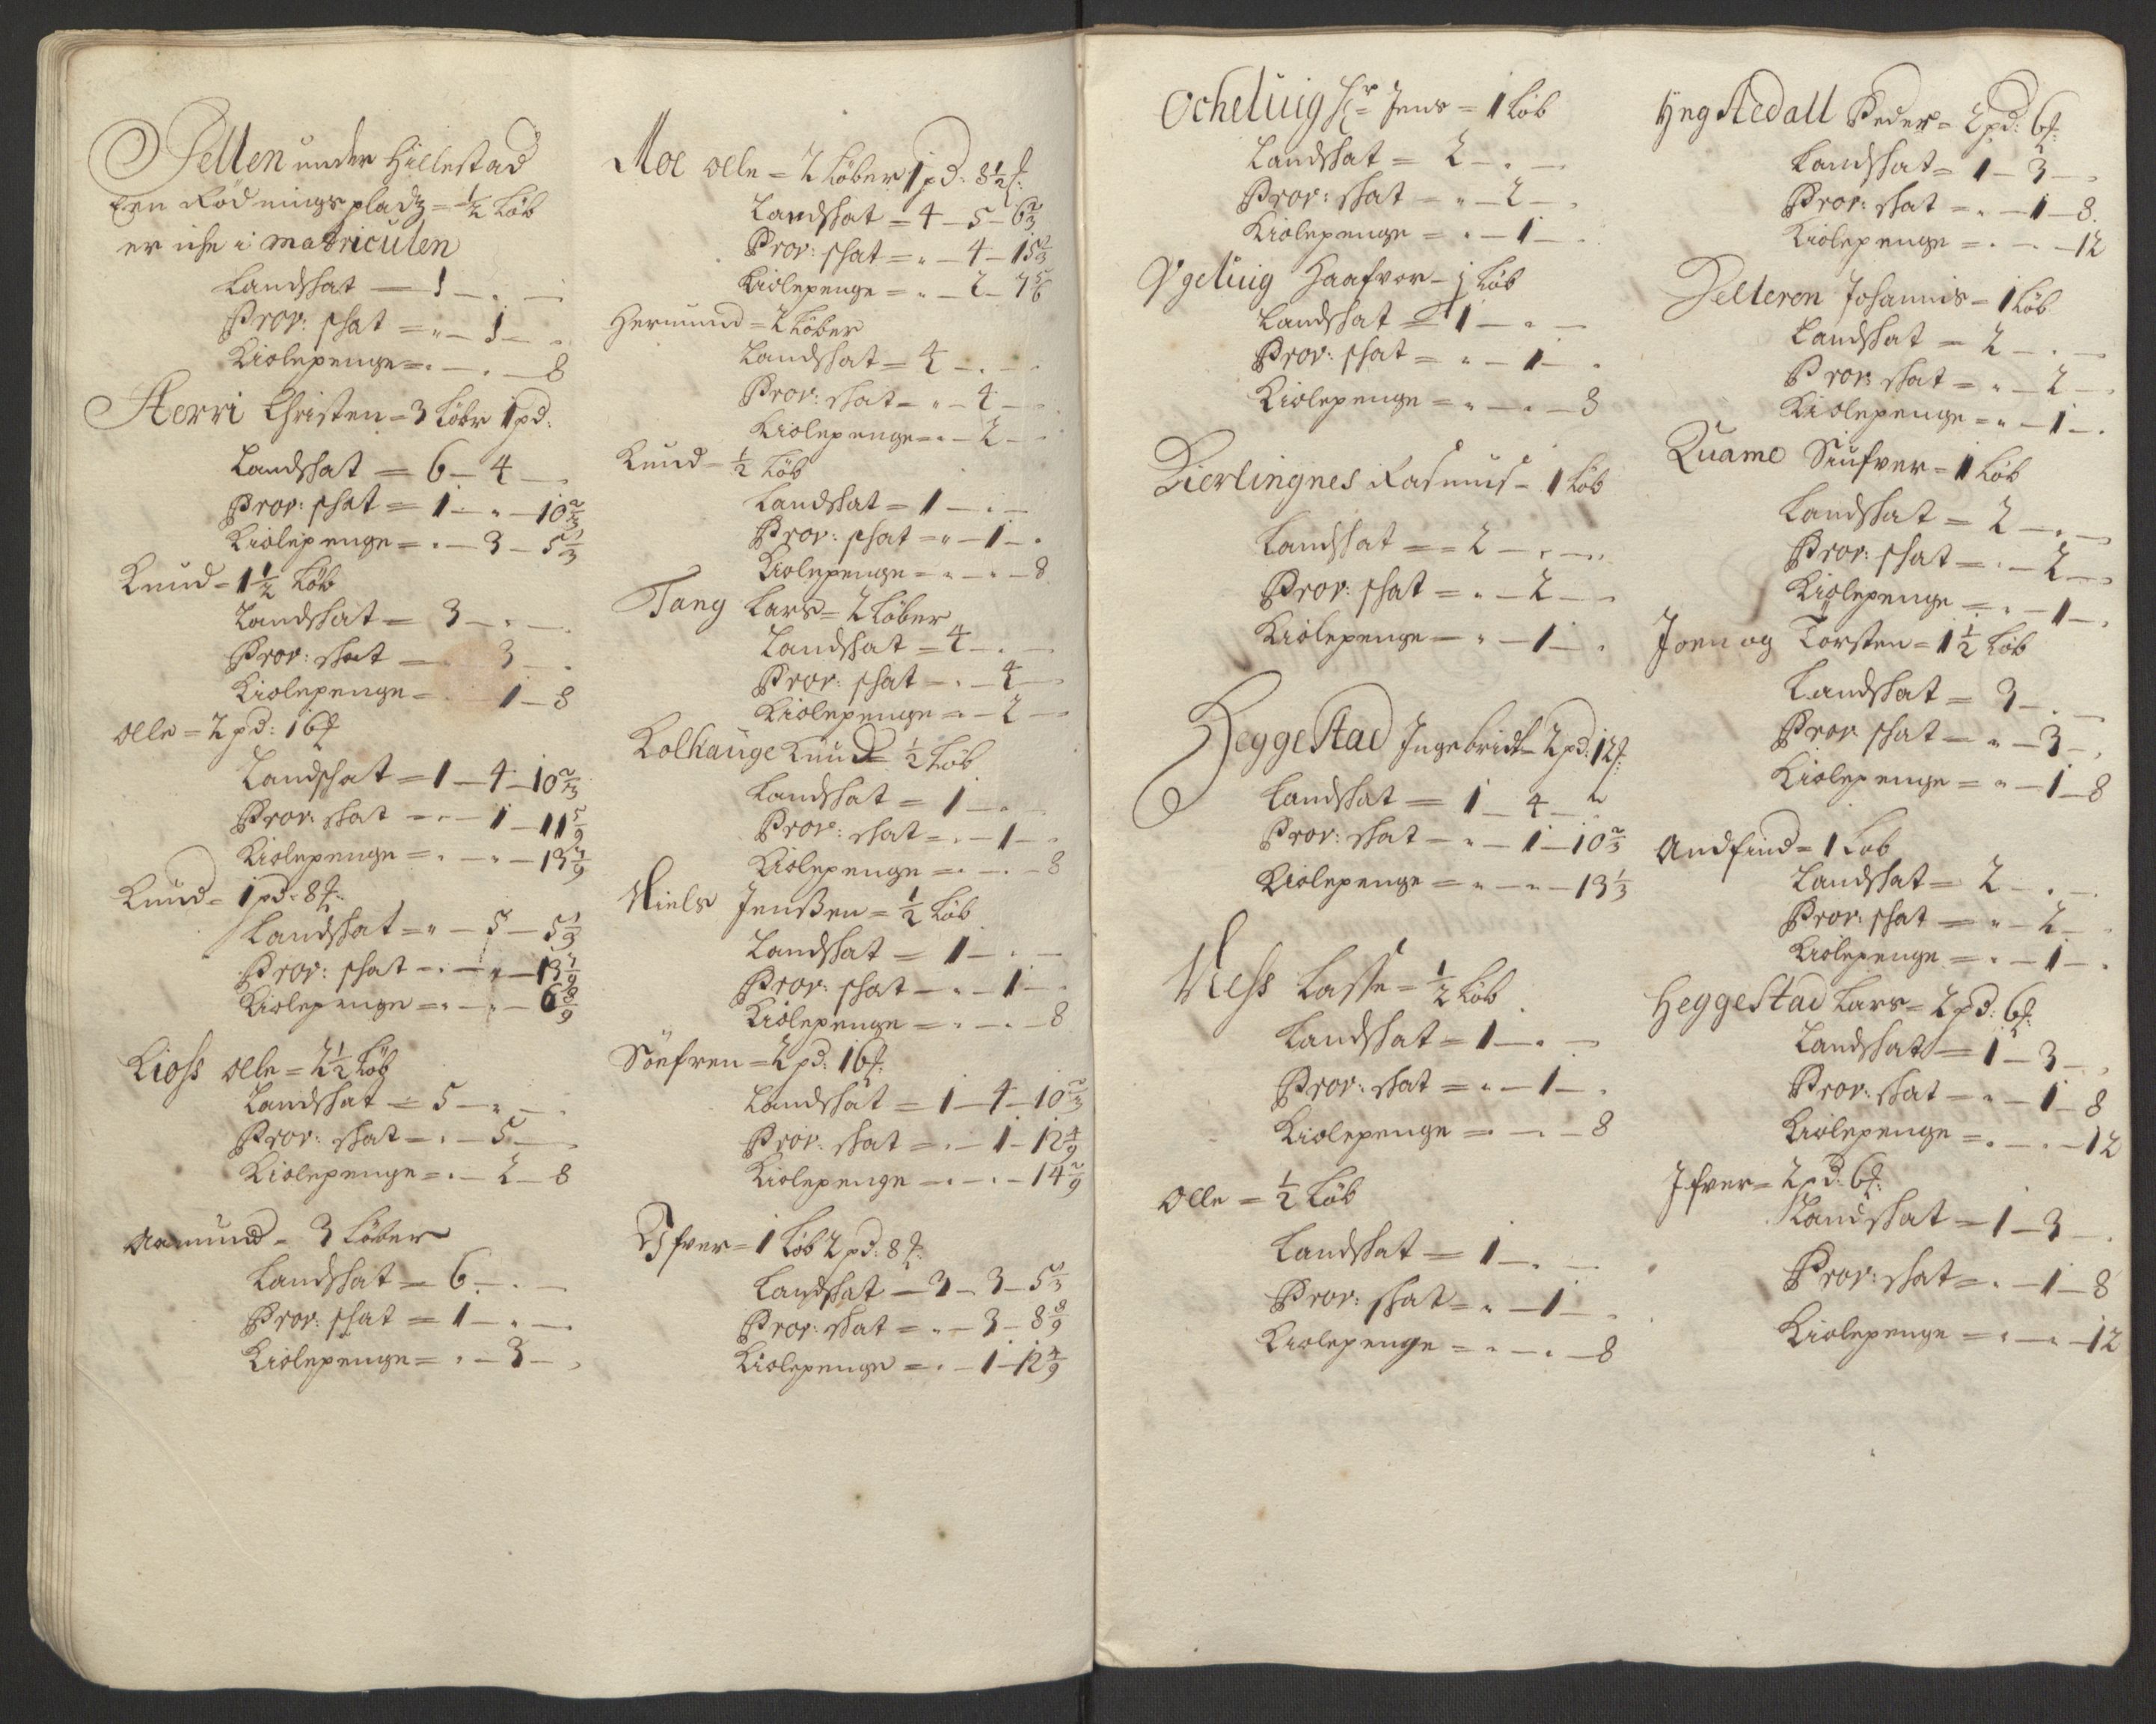 Sellen under Hillestad
Een Rödnings pladz = ½ Löb
er iche i Matriculen
Landskat — 1 — . —
Prov: skat = " — 1 — .
Kiolepenge = . — . — 8
Sterri Christen = 3 Löbr 1 pd:
Landskat = 6 — 4 — .
Prov: skat = 1 — . — 10⅔
Kiolepenge = . — 3 — 5⅓
Knud = 1½ Löb
Landskat = 3 — . — .
Prov: skat — . 3 — .
Kiolepenge = . 1 — 8
Olle = 2 pd: 16 f
Landskat = 1 — 4 — 10⅔
Prov: skat — . — 1 — 11 5/9
Kiolepenge = . — . — 13 7/9
Knud = 1 pd: 8 f:
Landskat = " — 5 — 5⅓
Prov: skat — . — " — 13 7/9
Kiolepenge = . — . — 6 8/9
Kioss Olle = 2½ Löb
Landskat = 5 — . — .
Prov: skat — . — 5 — .
Kiolepenge = . — 2 — 8
Aamund = 3 Löber
Landskat = 6 — . —
Prov: skat = 1 — . — .
Kiolepenge = . — 3 — .
Moe Olle = 2 Löber 1 pd: 8½ f:
Landskat = 4 — 5 — 6⅔
Prov: skat = " — 4 — 15⅔
Kiolepenge = " — 2 — 7 5/6
Hermund = 2 Löber
Landskat = 4 — . — .
Prov: skat — " — 4 — .
Kiolepenge = . — 2 — .
Knud = ½ Löb
Landskat = 1 — . —
Prov: skat = " — 1 — .
Kiolepenge = " — . — 8
Tang Lars = 2 Löber
Landskat = 4 — . —
Prov: skat — . — 4 —
Kiolepenge = . — 2 —
Kolhauge Knud = ½ Löb
Landskat = 1 — . —
Prov: skat = . — 1 — .
Kiolepenge = . — . — 8
Niels Jenssen = ½ Löb
Landskat = 1 — . —
Prov: skat — . — 1 — .
Kiolepenge = . — . — 8
Söefren = 2 pd: 16 f:
Landskat = 1 — 4 — 10⅔
Prov: skat = . — 1 — 12 4/9
Kiolepenge — . — . — 14 2/9
Ifver = 1 Löb 2 pd: 8 f:
Landskat — 3 — 3 — 5⅓
Prov: skat = " — 3 — 8 8/9
Kiolepenge = . — 1 — 12 4/9
Ocheluig Hr = Jens = 1 Löb
Landskat = 2 — . —
Prov: skat = " — 2 — .
Kiolepenge = . — 1 — .
Ygeluig Haafvor — 1 Löb
Landskat = 1 — . —
Prov: skat = " — 1 — .
Kiolepenge = " — . — 8
Kierlingnes Rasmus = 1 Löb
Landskat = = 2 — . — .
Prov: skat = . — 2 — .
Kiolepenge — " — 1 — .
Heggestad Ingebricht — 2 pd: 12 f:
Landskat = 1 — 4 — "
Prov: skat — " — 1 — 10⅔
Kiolepenge = " — " — 13⅓
Ness Lasse = ½ Löb
Landskat = 1 — . —
Prov: skat = " — 1 — .
Kiolepenge = . — . — 8
Olle = ½ Löb
Landskat = 1 — . —
Prov: skat = " — 1 — .
Kiolepenge = . — . — 8
Yngstedall Peder = 2 pd: 6 f:
Landskat = 1 — 3 — .
Prov: skat = . — 1 — 8.
Kiolepenge = . — . — 12
Selleren Johannis = 1 Löb
Landskat = 2 — . —
Prov: skat = " — 2 — .
Kiolepenge = " — 1 — .
Quame Siufver = 1 Löb
Landskat = 2 — . —
Prov: skat = . — 2 — .
Kiolepenge = . — 1 — .
Joen og Torsten = 1½ Löb
Landskat = 3 — . —
Prov: skat — " — 3 — .
Kiolepenge = " — 1 — 8
Andfind = 1 Löb
Landskat = 2 — . —
Prov: skat = " — 2 — .
Kiolepenge = . — 1 — .
Heggestad Lars = 2 pd: 6 f:
Landskat = 1 — 3 — .
Prov: skat — " — 1 — 8
Kiolepenge = . — . — 12
Ifver = 2 pd: 6 f:
Landskat = 1 — 3 — .
Prov: skat = . — 1 — 8
Kiolepenge = . — . — 12